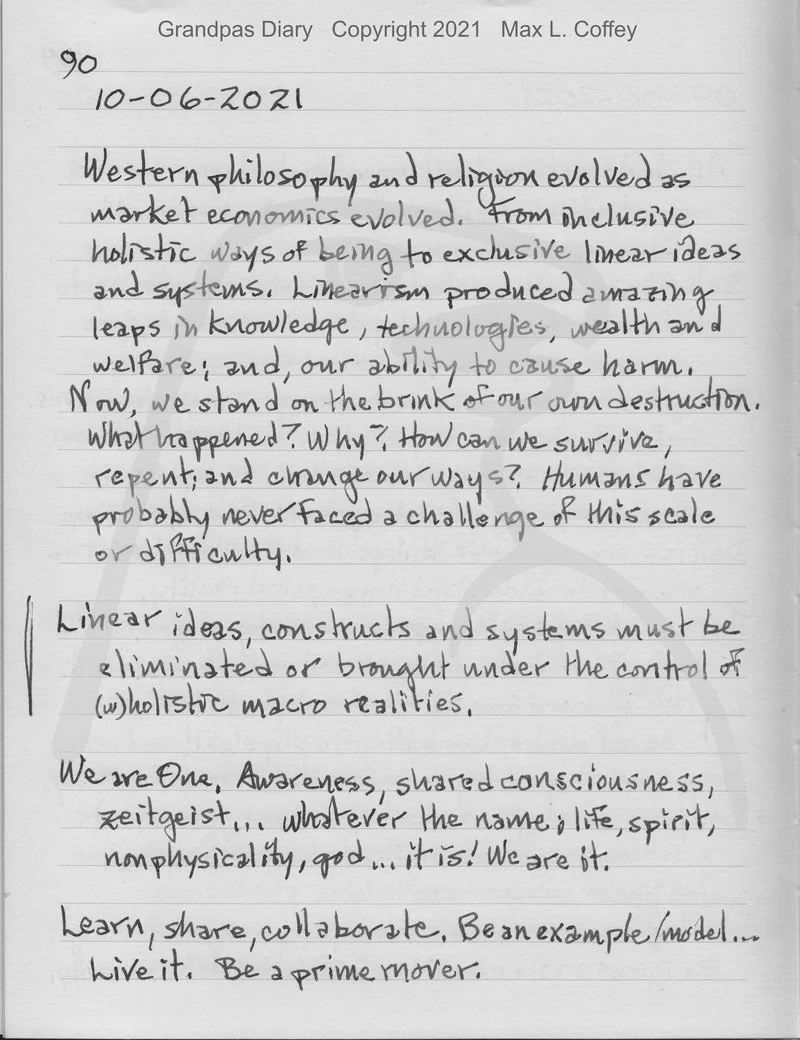 Grandpas Diary Copyright 2021 Max L. Coffey
90
10-06-2021
Western philosophy and religion evolved as
market economics evolved. From inclusive
holistic ways of being to exclusive linear ideas
and systems. Linearism produced amazing
leaps in knowledge, technologies, wealth and
welfare; and, our ability to cause harm.
Now, we stand on the brink of our own destruction.
What happened? Why? How can we survive,
repent; and change our ways? Humans have
probably never faced a challenge of this scale
or difficulty.
Linear ideas, constructs and systems must be
eliminated or brought under the control of
(w)holistic macro realities.
We are One. Awareness, shared consciousness,
zeitgeist... whatever the name; life, spirit,
nonphysicality, god... it is! We are it.
Learn, share, collaborate. Be an example/model...
Live it. Be a prime mover.